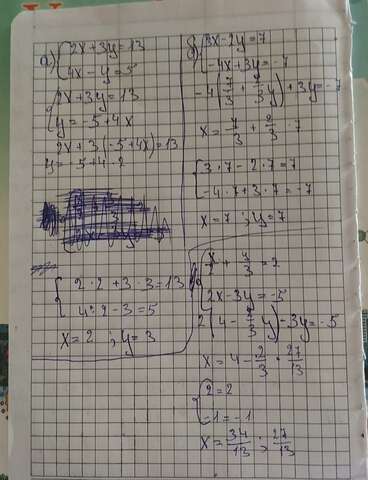 a) { 2x + 3y = 13
4x - y = 5
{ 2x + 3y = 13
y = -5 + 4x
2x + 3(-5 + 4x) = 13
y = -5 + 4 · 2
{ 2 · 2 + 3 · 3 = 13
4 · 2 - 3 = 5
x = 2 ; y = 3
{ 3x - 2y = 7
-4x + 3y = -7
-4(7/3 + 2/3 y) + 3y = -7
x = 7/3 + 2/3 · 7
{ 3 · 7 - 2 · 7 = 7
-4 · 7 + 3 · 7 = -7
x = 7 ; y = 7
{ x/2 + y/3 = 2
2x - 3y = -5
2(4 - 2/3 y) - 3y = -5
x = 4 - 2/3 · 27/13
{ 2 = 2
-1 = -1
x = 34/13 ; 27/13